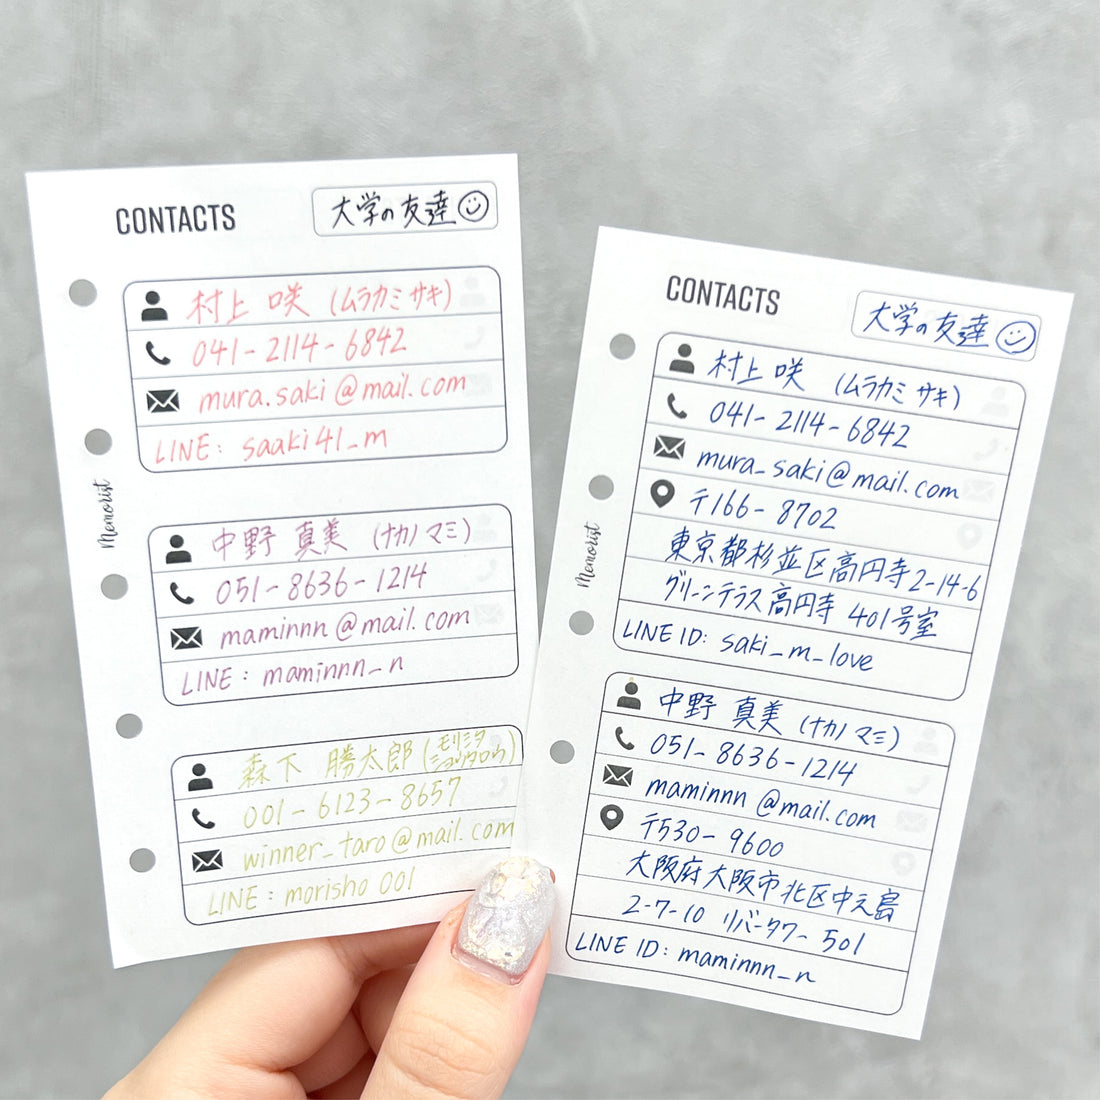 CONTACTS
大学の友達
村上 咲 (ムラカミ サキ)
041-2114-6842
mura.saki@mail.com
LINE: saaki41_m
Memorist
中野 真美 (ナカノ マミ)
051-8636-1214
maminnn@mail.com
LINE: maminnn_n
森下 勝太郎 (モリシタ
ショウタロウ)
001-6123-8657
winner_taro@mail.com
LINE: morisho001
CONTACTS
大学の友達
村上 咲 (ムラカミ サキ)
041-2114-6842
mura_saki@mail.com
〒166-8702
東京都杉並区高円寺2-14-6
グリーンテラス高円寺 401号室
LINE ID: saki_m_love
Memorist
中野 真美 (ナカノ マミ)
051-8636-1214
maminnn@mail.com
〒530-9600
大阪府大阪市北区中之島
2-7-10 リバータワー 501
LINE ID: maminnn_n